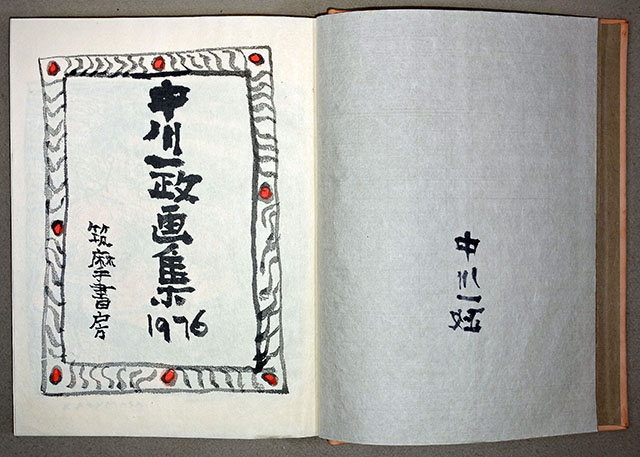 中川一政画集
1976
筑摩書房
中川一政